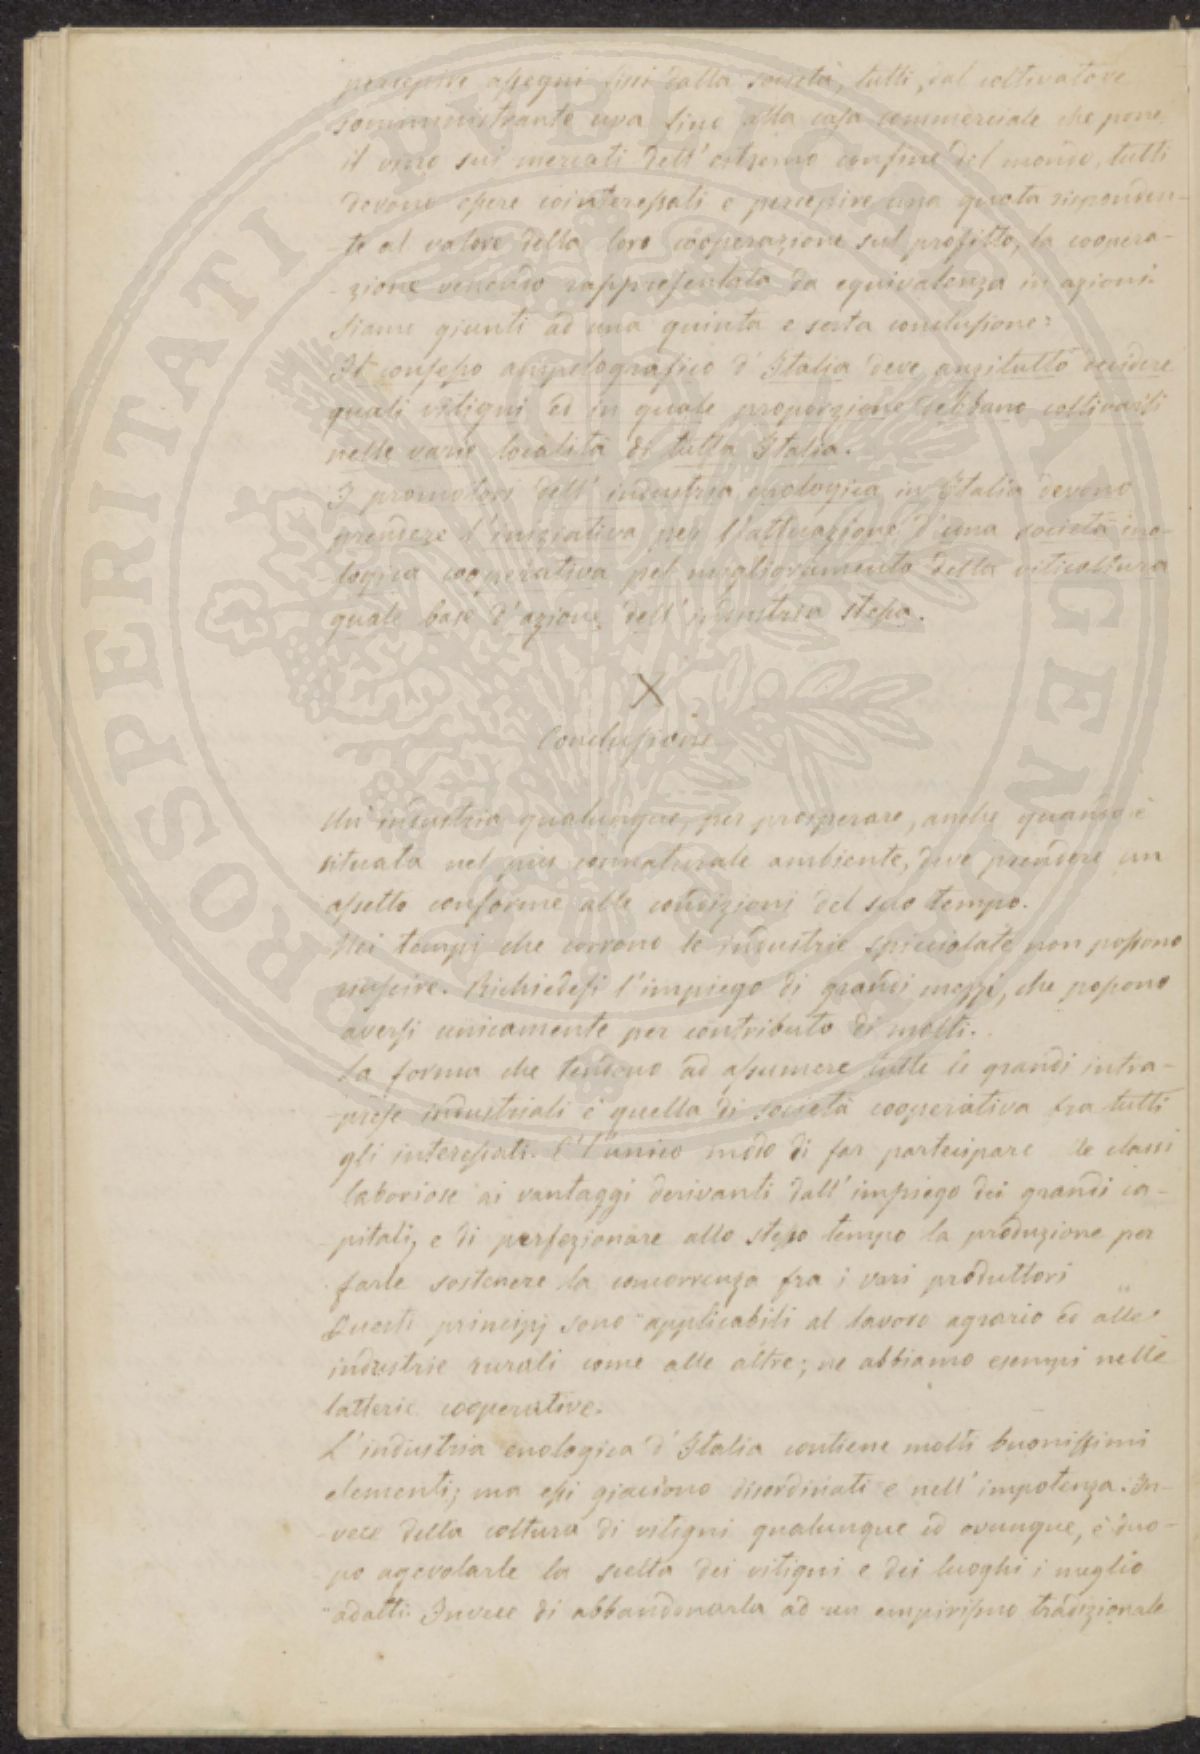 percepire assegni fissi dalla società, tutti, dal coltivatore
somministrante uva sino alla casa commerciale che pone
il vino sui mercati dell'estremo confine del mondo, tutti
devono essere cointeressati e percepire una quota risponden-
-te al valore della loro cooperazione sul profitto, la coopera-
-zione venendo rappresentata da equivalenza in azioni.
Siamo giunti ad una quinta e sesta conclusione:
Il consesso ampelografico d'Italia deve anzitutto decidere
quali vitigni ed in quale proporzione debbano coltivarsi
nelle varie località di tutta Italia.
I promotori dell'industria enologica in Italia devono
prendere l'iniziativa per l'attuazione d'una società eno-
-logica cooperativa pel miglioramento della viticoltura
quale base d'azione dell'industria stessa.
X
Conclusione
Un'industria qualunque, per prosperare, anche quando è
situata nel più connaturale ambiente, deve prendere un
assetto conforme alle condizioni del suo tempo.
Nei tempi che corrono le industrie spicciolate non possono
riuscire. Richiedesi l'impiego di grandi mezzi, che possono
aversi unicamente per contributo di molti.
La forma che tendono ad assumere tutte le grandi intra-
-prese industriali è quella di società cooperativa fra tutti
gli interessati. È l'unico modo di far partecipare le classi
laboriose ai vantaggi derivanti dall'impiego dei grandi ca-
-pitali, e di perfezionare allo stesso tempo la produzione per
farle sostenere la concorrenza fra i vari produttori
Questi principj sono applicabili al lavoro agrario ed alle
industrie rurali come alle altre; ne abbiamo esempi nelle
latterie cooperative.
L'industria enologica d'Italia contiene molti buonissimi
elementi; ma essi giaciono disordinati e nell'impotenza. In-
-vece della coltura di vitigni qualunque ed ovunque, è duo-
-po agevolarle la scelta dei vitigni e dei luoghi i meglio
adatti. Invece di abbandonarla ad un empirismo tradizionale
PROSPERITATI PUBLICAE AUGENDAE